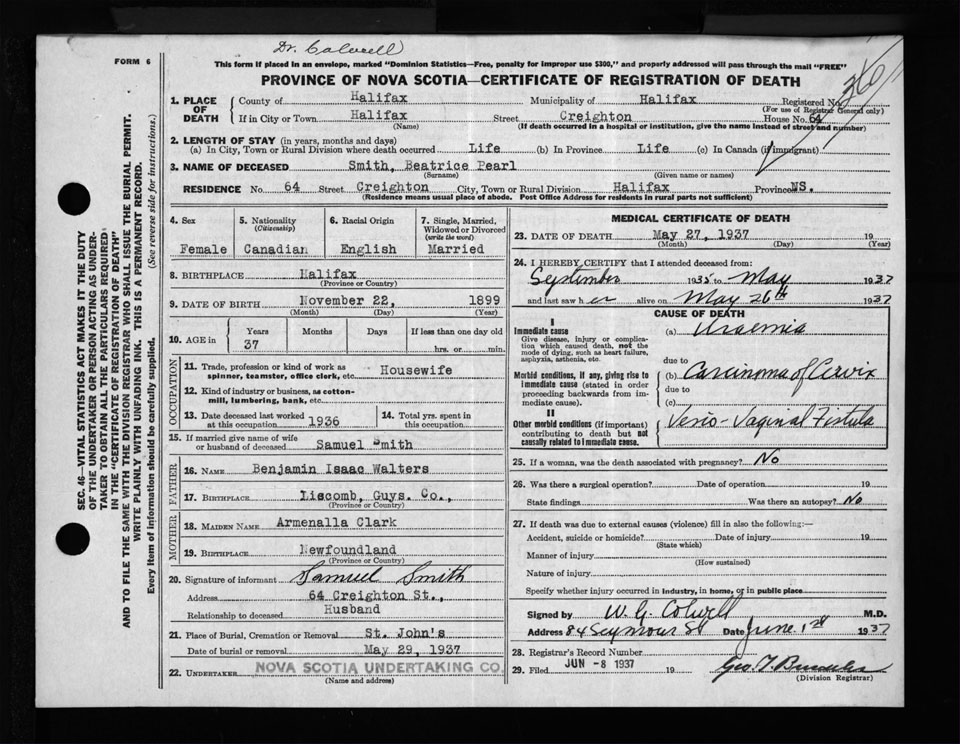 Dr. Colwell
FORM 6
This form if placed in an envelope, marked "Dominion Statistics—Free, penalty for improper use $300," and properly addressed will pass through the mail "FREE"
PROVINCE OF NOVA SCOTIA—CERTIFICATE OF REGISTRATION OF DEATH
1. PLACE OF DEATH
County of Halifax Municipality of Halifax Registered No.
(For use of Registrar General only)
If in City or Town Halifax Street Creighton House No. 64
(Name) (If death occurred in a hospital or institution, give the name instead of street and number)
2. LENGTH OF STAY (in years, months and days)
(a) In City, Town or Rural Division where death occurred Life (b) In Province Life (c) In Canada (if immigrant)
3. NAME OF DECEASED Smith, Beatrice Pearl
(Surname) (Given name or names)
RESIDENCE No. 64 Street Creighton City, Town or Rural Division Halifax Province NS.
(Residence means usual place of abode. Post Office Address for residents in rural parts not sufficient)
4. Sex
Female
5. Nationality
(Citizenship)
Canadian
6. Racial Origin
English
7. Single, Married, Widowed or Divorced
(write the word)
Married
8. BIRTHPLACE Halifax
(Province or Country)
9. DATE OF BIRTH November 22, 1899
(Month) (Day) (Year)
10. AGE in
Years Months Days If less than one day old
37 hrs. or min.
OCCUPATION
11. Trade, profession or kind of work as spinner, teamster, office clerk, etc. Housewife
12. Kind of industry or business, as cotton-mill, lumbering, bank, etc.
13. Date deceased last worked at this occupation 1936
14. Total yrs. spent in this occupation
15. If married give name of wife or husband of deceased Samuel Smith
FATHER
16. NAME Benjamin Isaac Walters
17. BIRTHPLACE Liscomb, Guys. Co.,
(Province or Country)
MOTHER
18. MAIDEN NAME Armenalla Clark
19. BIRTHPLACE Newfoundland
(Province or Country)
20. Signature of informant Samuel Smith
Address 64 Creighton St.,
Relationship to deceased Husband
21. Place of Burial, Cremation or Removal St. John's
Date of burial or removal May 29, 1937
22. UNDERTAKER NOVA SCOTIA UNDERTAKING CO.
(Name and address)
MEDICAL CERTIFICATE OF DEATH
23. DATE OF DEATH May 27, 1937 19
(Month) (Day) (Year)
24. I HEREBY CERTIFY that I attended deceased from:
September 1935 to May 1937
and last saw her alive on May 26th 1937
CAUSE OF DEATH
I
Immediate cause
Give disease, injury or complication which caused death, not the mode of dying, such as heart failure, asphyxia, asthenia, etc.
(a) Uraemia
due to
Morbid conditions, if any, giving rise to immediate cause (stated in order proceeding backwards from immediate cause).
(b) Carcinoma of Cervix
due to
(c)
II
Other morbid conditions (if important) contributing to death but not causally related to immediate cause.
Vesico-Vaginal Fistula
25. If a woman, was the death associated with pregnancy? No
26. Was there a surgical operation? Date of operation 19
State findings Was there an autopsy? No
27. If death was due to external causes (violence) fill in also the following:—
Accident, suicide or homicide? Date of injury 19
(State which)
Manner of injury
(How sustained)
Nature of injury
Specify whether injury occurred in industry, in home, or in public place
Signed by W. G. Colwell M.D.
Address 84 Seymour St Date June 1st 1937
28. Registrar's Record Number
29. Filed JUN -8 1937 19
(Division Registrar)
SEC. 46—VITAL STATISTICS ACT MAKES IT THE DUTY
OF THE UNDERTAKER OR PERSON ACTING AS UNDER-
TAKER TO OBTAIN ALL THE PARTICULARS REQUIRED
IN THE "CERTIFICATE OF REGISTRATION OF DEATH"
AND TO FILE THE SAME WITH THE DIVISION REGISTRAR WHO SHALL ISSUE THE BURIAL PERMIT.
WRITE PLAINLY WITH UNFADING INK. THIS IS A PERMANENT RECORD.
Every item of information should be carefully supplied. (See reverse side for instructions.)